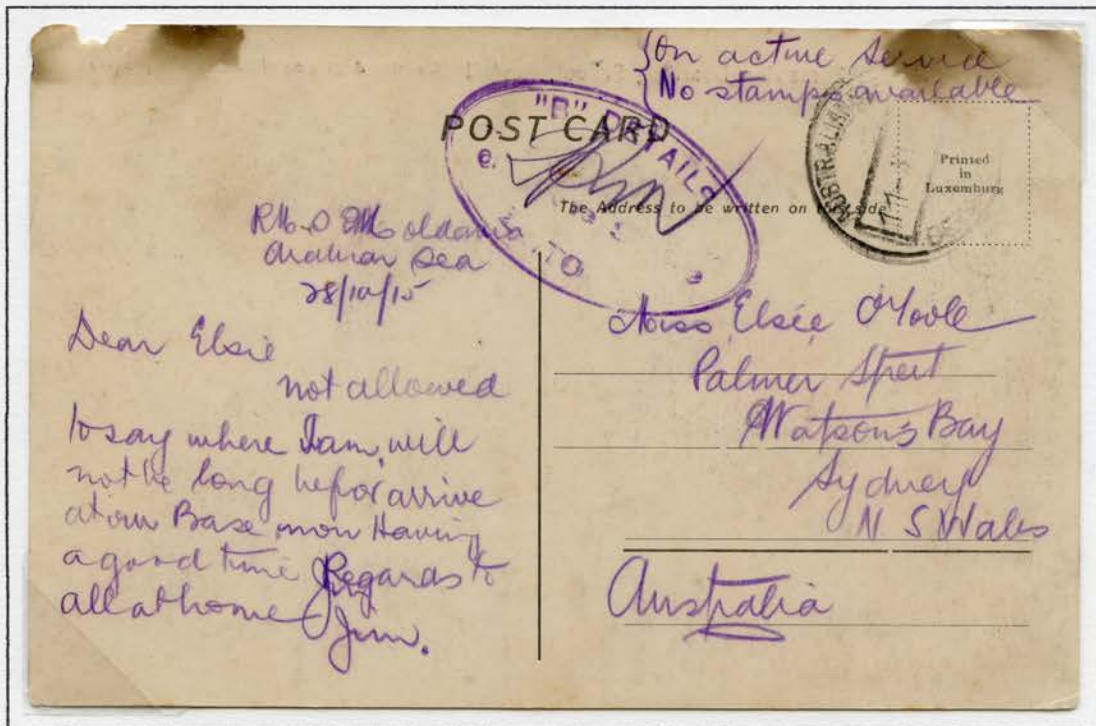 On active Service
No stamps available
POST CARD
"B" DETAILS
TO
AUSTRALIAN
Printed
in
Luxemburg
The Address to be written on this side
R.M.S Moldavia
Arabian Sea
28/10/15
Dear Elsie
not allowed
to say where I am, will
not be long befor arrive
at our Base now Having
a good time Regards to
all at home
Jim.
Miss Elsie O'Toole
Palmer Street
Watsons Bay
Sydney
N S Wales
Australia